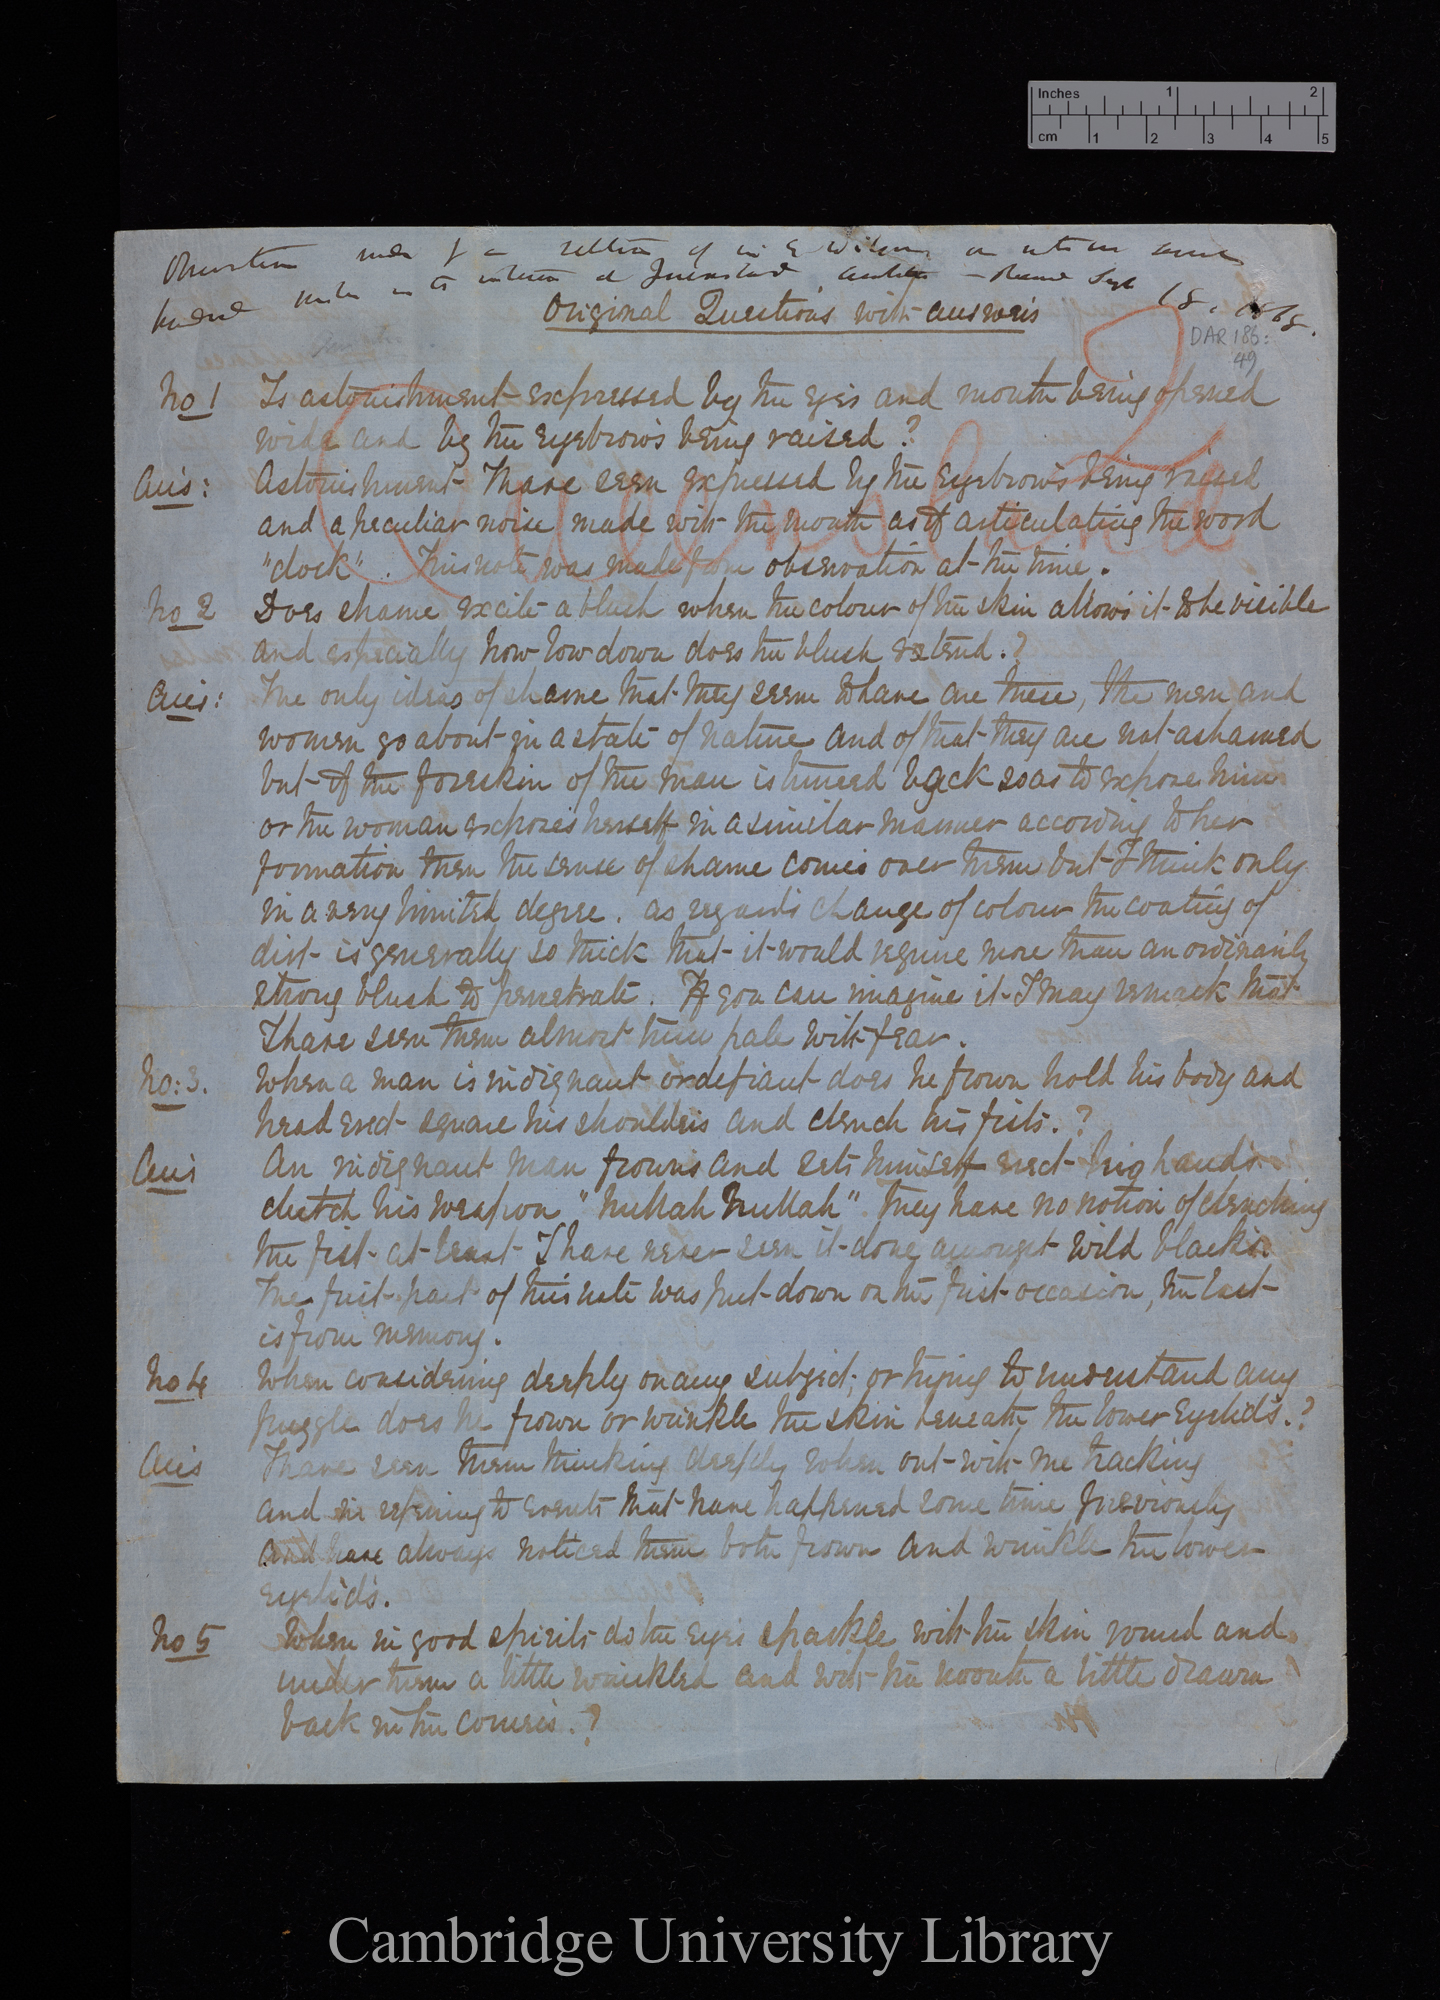 Inches 1 2
cm 1 2 3 4 5
Observation made by a relation of E Wilson
hundred miles in the interior of Queensland, Sept 18. 1868.
Original Questions with answers
DAR 185:
49
2
Queensland
No 1 Is astonishment expressed by the eyes and mouth being opened
wide and by the eyebrows being raised?
Ans: Astonishment I have seen expressed by the eyebrows being raised
and a peculiar noise made with the mouth as if articulating the word
"clock". This note was made from observation at the time.
No 2 Does shame excite a blush when the colour of the skin allows it to be visible
and especially how low down does the blush extend.?
Ans: The only ideas of shame that they seem to have are these, the men and
women go about in a state of nature and of that they are not ashamed
but if the foreskin of the man is turned back so as to expose him
or the woman exposes herself in a similar manner according to her
formation then the sense of shame comes over them but I think only
in a very limited degree. as regards change of colour the coating of
dirt is generally so thick that it would require more than an ordinarily
strong blush to penetrate. If you can imagine it I may remark that
I have seen them almost turn pale with fear.
No: 3. When a man is indignant or defiant does he frown hold his body and
head erect square his shoulders and clench his fists.?
Ans An indignant man frowns and sets himself erect his hands
clutch his weapon "Nullah Nullah". They have no notion of clenching
the fist at least I have never seen it done amongst wild blacks.
The first part of this note was put down on the first occasion, the last
is from memory.
No 4 When considering deeply on any subject, or trying to understand any
puzzle does he frown or wrinkle the skin beneath the lower eyelids.?
Ans I have seen them thinking deeply when out with me tracking
and in refering to events that have happened some time previously
and have always noticed them both frown and wrinkle the lower
eyelids.
No 5 When in good spirits do the eyes sparkle with the skin round and
under them a little wrinkled and with the mouth a little drawn
back in the corners.?
Cambridge University Library